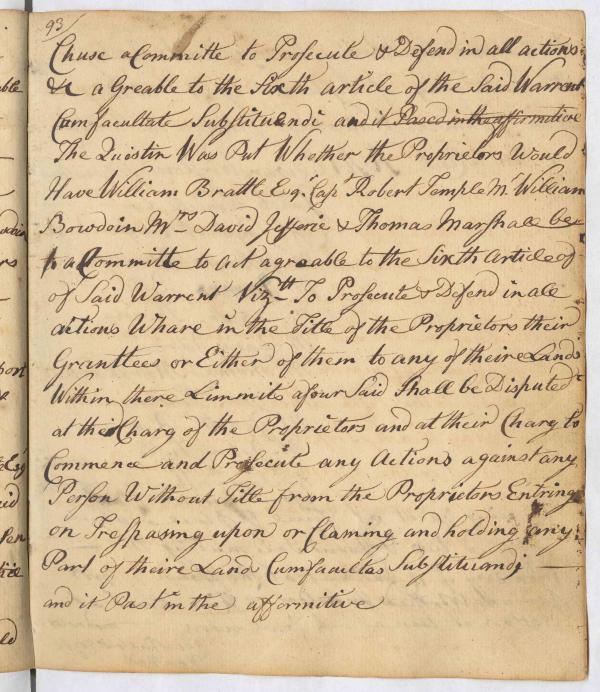 93
Chuse a Committe to Prosecute & Defend in all actions
&c a Greable to the Sixth article of the Said Warrent
Cumfacultate Substituendi and it Pased in the affirmative
The Quistin Was Put Whether the Proprietors Would
Have William Brattle Esqr Capt Robert Temple Mr William
Bowdoin Mrs David Jefferie & Thomas Marshall be
a Committe to act agreable to the Sixth Article of
of Said Warrent Vizth To Prosecute & Defend in all
actions Whare in the Title of the Proprietors their
Granttees or Either of them to any of theire Lands
Within there Limmits afour Said Shall be Disputed
at the Charg of the Proprietors and at their Charg to
Commence and Prosecute any Actions against any
Person Without Title from the Proprietors Entring
on Trespasing upon or Claming and holding any
Part of theire Land Cumfacultas Substituandi
and it Past in the afformitive